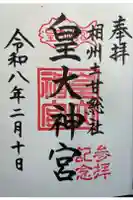 奉拝
相州土甘総社
皇大神宮
参拝
記念
令和八年二月十日